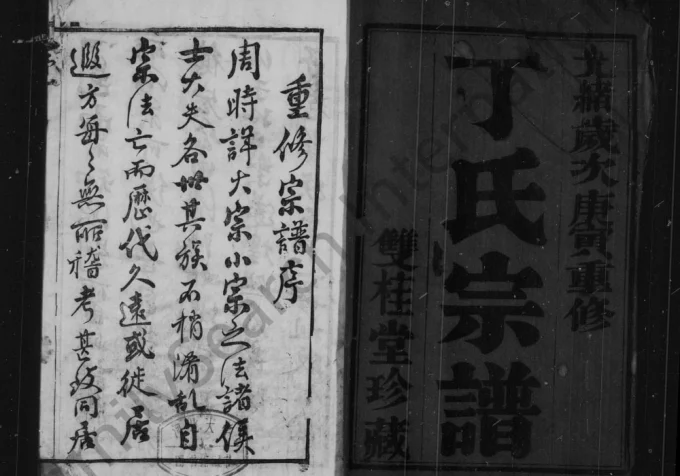 光緒歲次庚寅重修
丁氏宗譜
雙桂堂珍藏
重修宗譜序
周時詳大宗小宗之法諸侯
士大夫各世其族不稍淆亂自
宗法亡而歷代久遠或徙居
遐方每々無所稽考甚致同居